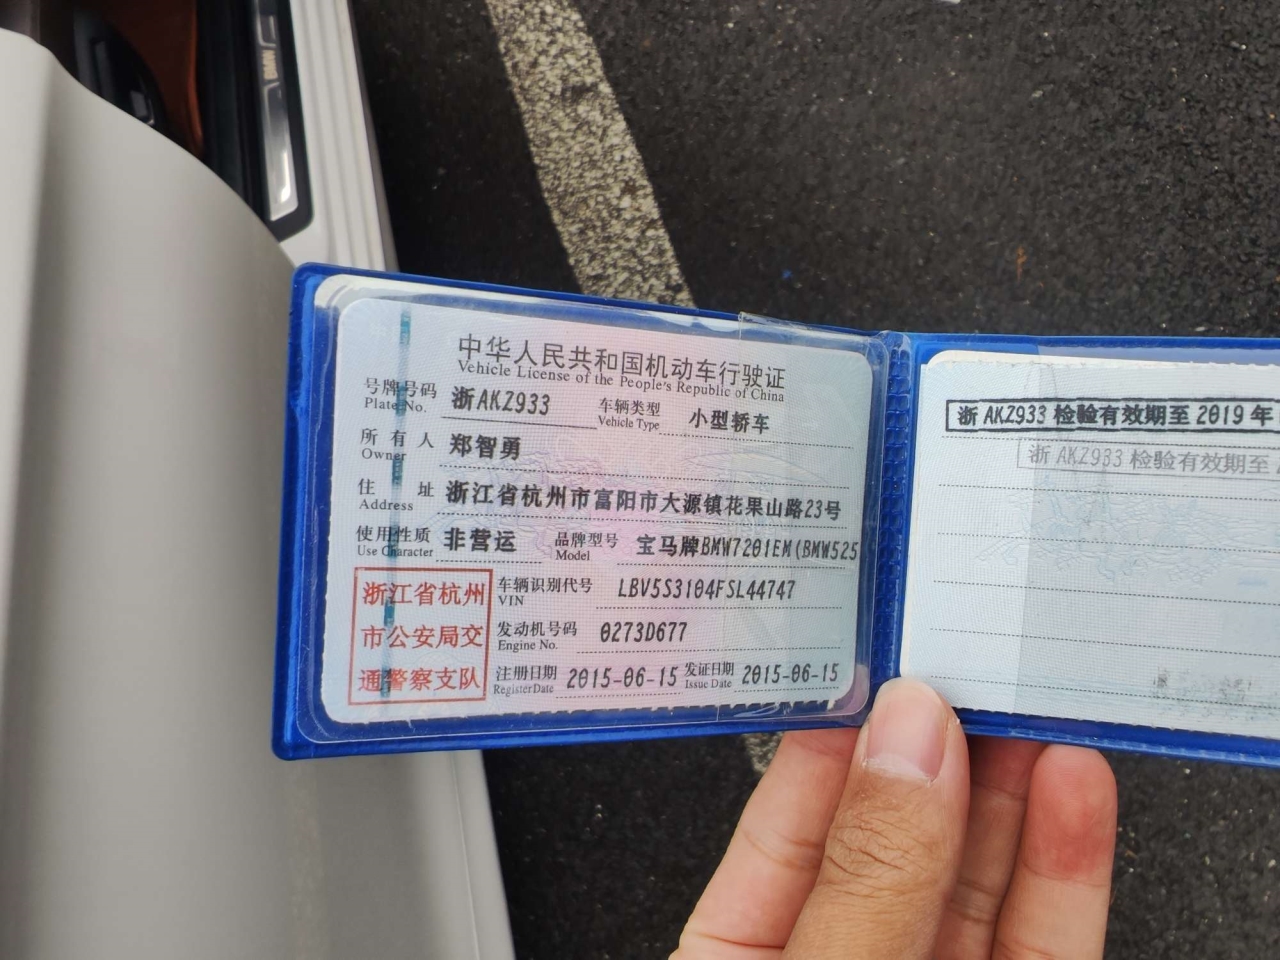 中华人民共和国机动车行驶证
Vehicle License of the People's Republic of China
号牌号码 浙AKZ933 车辆类型 小型轿车
Plate No. Vehicle Type
所有人 郑智勇
Owner
住址 浙江省杭州市富阳市大源镇花果山路23号
Address
使用性质 非营运 品牌型号 宝马牌BMW7201EM(BMW525
Use Character Model
浙江省杭州
市公安局交
通警察支队
车辆识别代号 LBV5S3104FSL44747
VIN
发动机号码 0273D677
Engine No.
注册日期 2015-06-15 发证日期 2015-06-15
Register Date Issue Date
浙AKZ933检验有效期至2019年
浙AKZ933检验有效期至
BMW